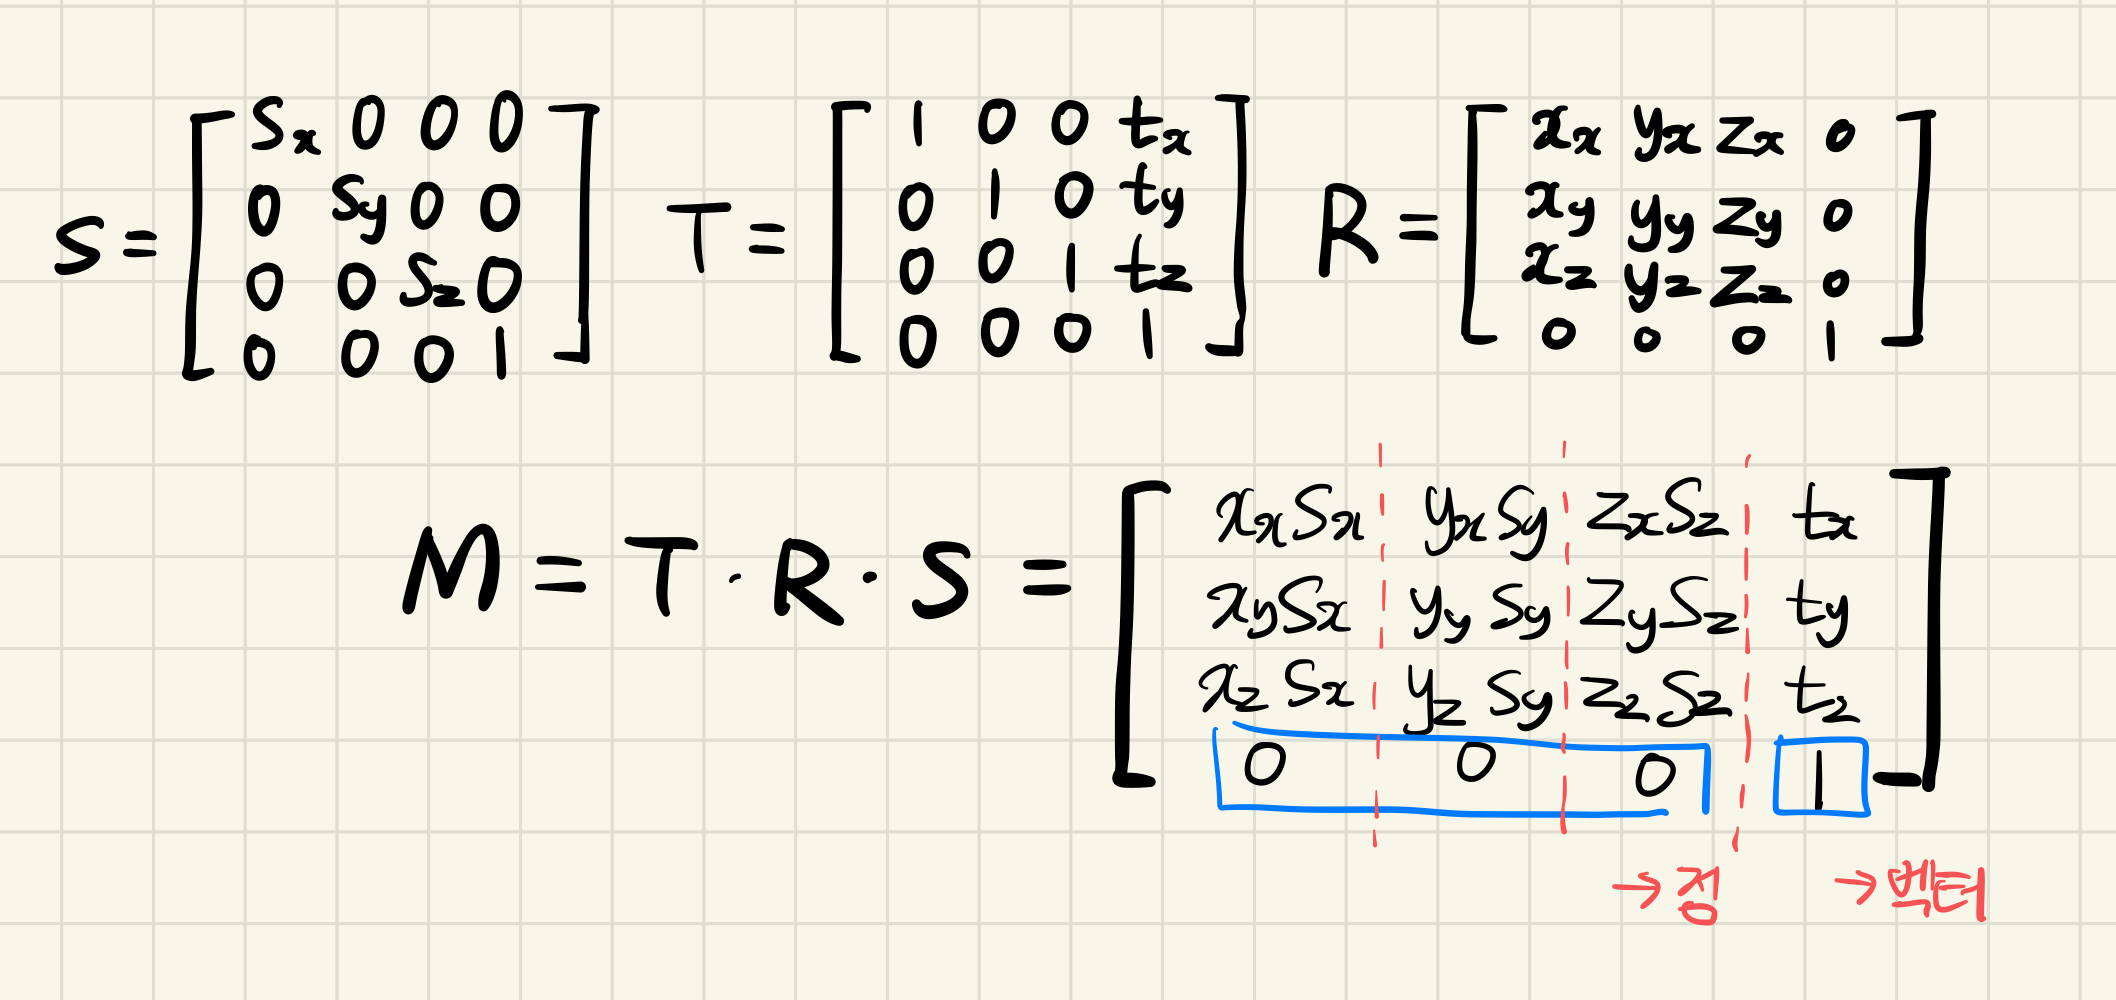 S = [ Sx 0 0 0
0 Sy 0 0
0 0 Sz 0
0 0 0 1 ]
T = [ 1 0 0 tx
0 1 0 ty
0 0 1 tz
0 0 0 1 ]
R = [ xx yx zx 0
xy yy zy 0
xz yz zz 0
0 0 0 1 ]
M = T · R · S = [ xxSx yxSy zxSz tx
xySx yySy zySz ty
xzSx yzSy zzSz tz
0 0 0 1 ]
→ 점 → 벡터